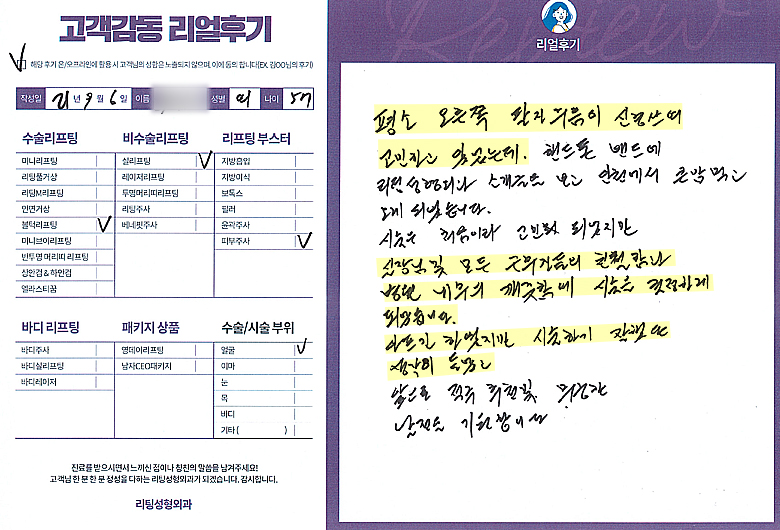 고객감동 리얼후기
해당 후기 온/오프라인에 활용 시 고객님의 성함은 노출되지 않으며, 이에 동의 합니다(EX. 김OO님의 후기)
작성일 21년 9월 6일 이름 성별 여 나이 57
수술리프팅 비수술리프팅 리프팅 부스터
미니리프팅 실리프팅 지방흡입
리팅풀거상 레이저리프팅 지방이식
리팅M리프팅 투명머리띠리프팅 보톡스
안면거상 리팅주사 필러
불턱리프팅 베네핏주사 윤곽주사
미니브이리프팅 피부주사
반투명 머리띠 리프팅
상안검 & 하안검
엘라스티꿈
바디 리프팅 패키지 상품 수술/시술 부위
바디주사 영데이리프팅 얼굴
바디실리프팅 남자CEO패키지 이마
바디레이저 눈
목
바디
기타 ( )
진료를 받으시면서 느끼신 점이나 칭찬의 말씀을 남겨주세요!
고객님 한 분 한 분 정성을 다하는 리팅성형외과가 되겠습니다. 감사합니다.
리팅성형외과
Review
리얼후기
평소 오른쪽 팔자주름이 신경쓰여
고민하고 있었는데. 핸드폰 밴드에
리팅성형외과 소개글을 보고 인천에서 큰맘 먹고
오게 되었습니다.
시술은 처음이라 고민이 되었지만
원장님 및 모든 근무자들의 친절함과
병원 내부의 깨끗함에 시술을 결정하게
되었습니다.
아프긴 하였지만 시술하기 잘했다
생각이 들었고
앞으로 점점 회복 및
날짜를 기대합니다